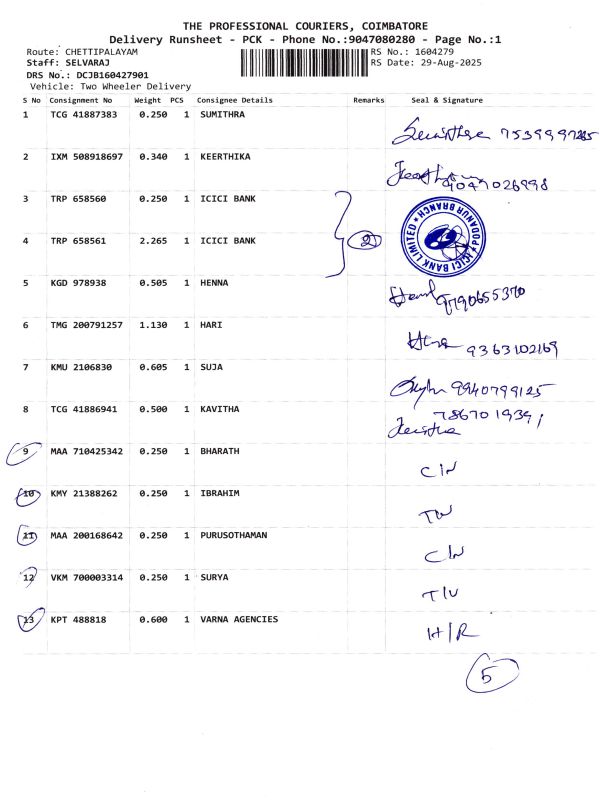 THE PROFESSIONAL COURIERS, COIMBATORE
Delivery Runsheet - PCK - Phone No.:9047080280 - Page No.:1
Route: CHETTIPALAYAM RS No.: 1604279
Staff: SELVARAJ RS Date: 29-Aug-2025
DRS No.: DCJB160427901
Vehicle: Two Wheeler Delivery
S No Consignment No Weight PCS Consignee Details Remarks Seal & Signature
1 TCG 41887383 0.250 1 SUMITHRA
2 IXM 508918697 0.340 1 KEERTHIKA
9047026998
3 TRP 658560 0.250 1 ICICI BANK
ICICI BANK LIMITED PODANUR BRANCH
2
4 TRP 658561 2.265 1 ICICI BANK
5 KGD 978938 0.505 1 HENNA
9790655370
6 TMG 200791257 1.130 1 HARI
9363102169
7 KMU 2106830 0.605 1 SUJA
9940799125
8 TCG 41886941 0.500 1 KAVITHA
9 MAA 710425342 0.250 1 BHARATH
C/N
10 KMY 21388262 0.250 1 IBRAHIM
11 MAA 200168642 0.250 1 PURUSOTHAMAN
C/N
12 VKM 700003314 0.250 1 SURYA
13 KPT 488818 0.600 1 VARNA AGENCIES
H/R
5